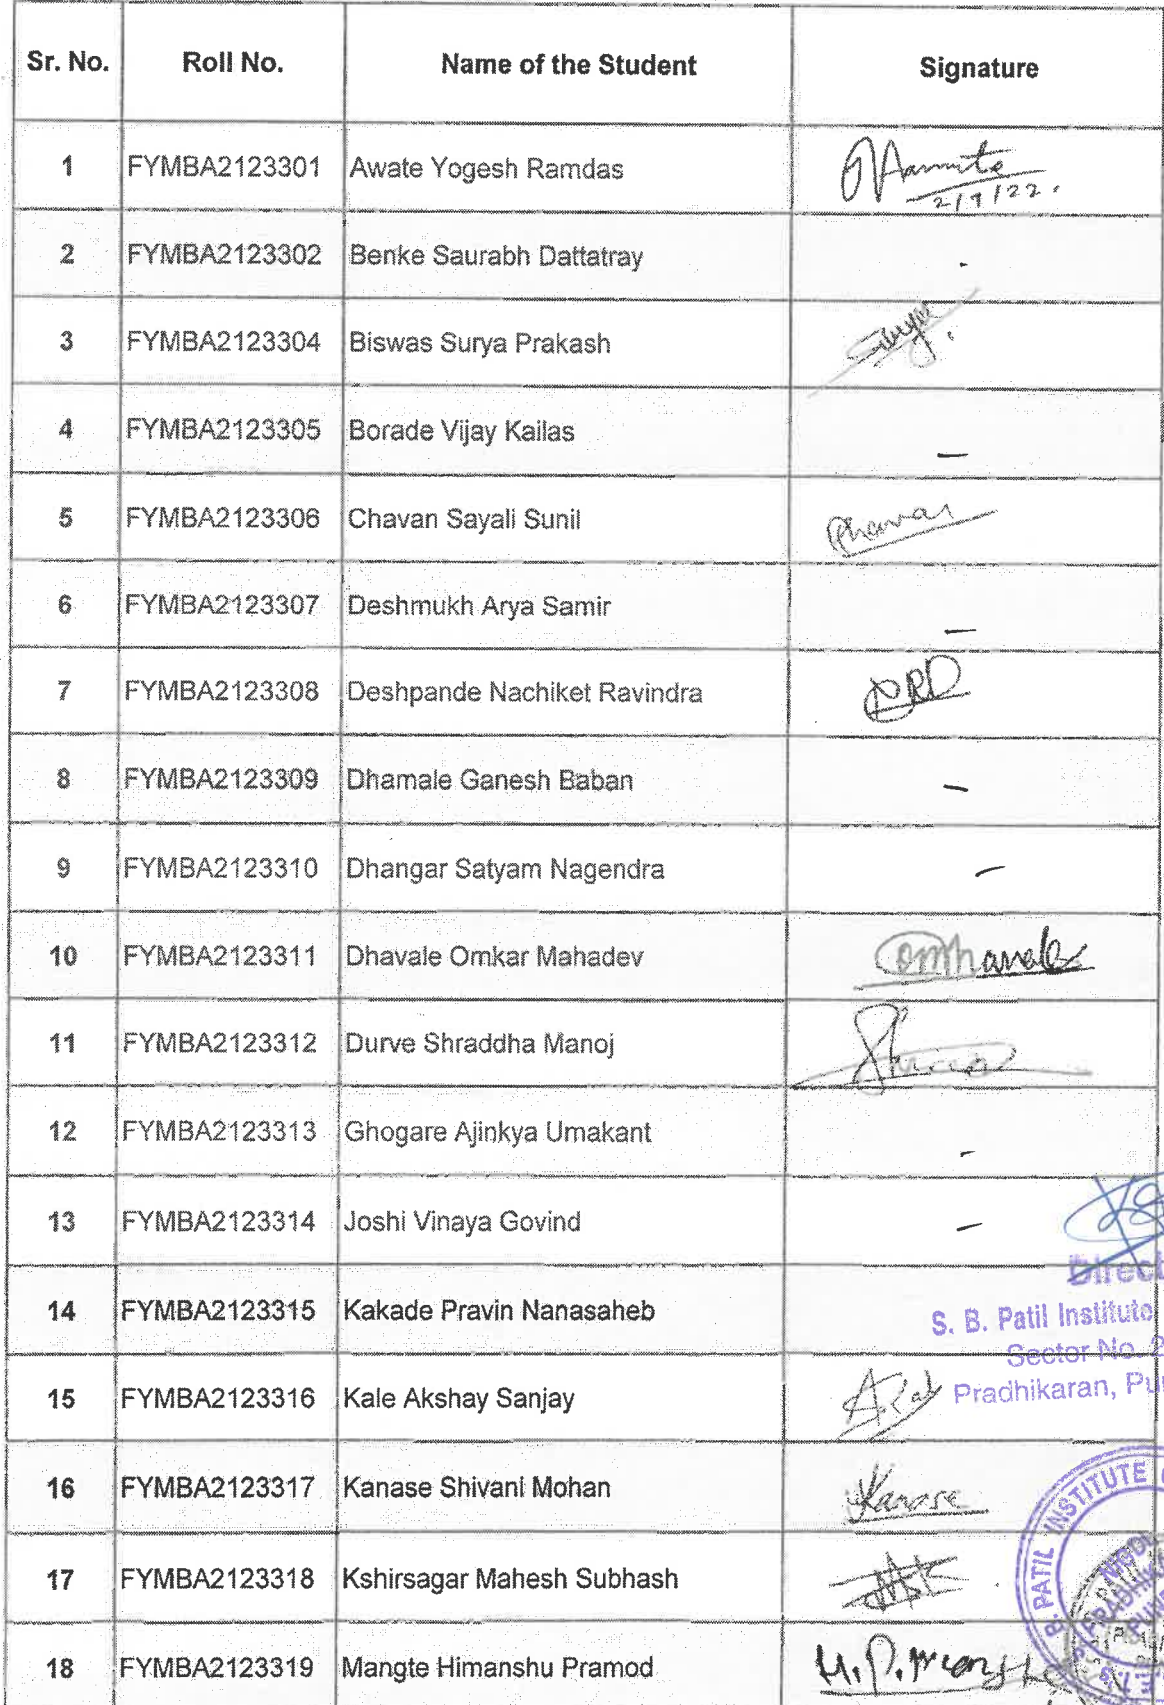 Sr. No. Roll No. Name of the Student Signature
1 FYMBA2123301 Awate Yogesh Ramdas
2/9/22.
2 FYMBA2123302 Benke Saurabh Dattatray -
3 FYMBA2123304 Biswas Surya Prakash
4 FYMBA2123305 Borade Vijay Kailas -
5 FYMBA2123306 Chavan Sayali Sunil Chavan
6 FYMBA2123307 Deshmukh Arya Samir -
7 FYMBA2123308 Deshpande Nachiket Ravindra NRD
8 FYMBA2123309 Dhamale Ganesh Baban -
9 FYMBA2123310 Dhangar Satyam Nagendra -
10 FYMBA2123311 Dhavale Omkar Mahadev
11 FYMBA2123312 Durve Shraddha Manoj
12 FYMBA2123313 Ghogare Ajinkya Umakant -
13 FYMBA2123314 Joshi Vinaya Govind -
Direct
14 FYMBA2123315 Kakade Pravin Nanasaheb
S. B. Patil Institute
Sector No. 2
15 FYMBA2123316 Kale Akshay Sanjay
Pradhikaran, Pu
16 FYMBA2123317 Kanase Shivani Mohan Kanase
B. PATIL INSTITUTE
17 FYMBA2123318 Kshirsagar Mahesh Subhash
18 FYMBA2123319 Mangte Himanshu Pramod